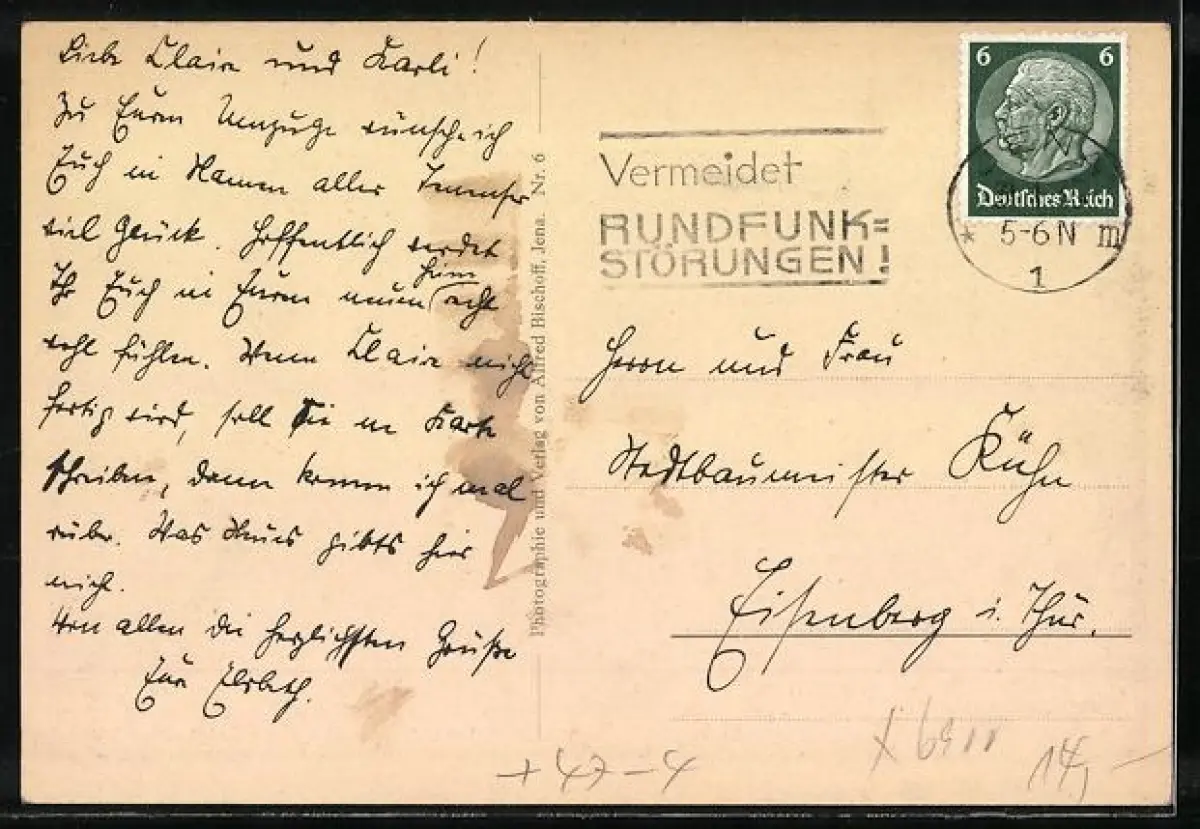 Liebe Claire und Karli!
Zu Eurem Umzuge wünsche ich
Euch im Namen aller Jenenser
viel Glück. Hoffentlich werdet
Ihr Euch in Eurem neuen Heim recht
wohl fühlen. Wenn Claire nicht
fertig wird, soll sie ne Karte
schreiben, dann komme ich mal
rüber. Was Neues gibts hier
nicht.
Von allen die herzlichsten Grüße
Eure Elsbeth.
Photographie und Verlag von Alfred Bischoff, Jena. Nr. 6
Vermeidet
RUNDFUNK=
STÖRUNGEN!
6 6
Deutsches Reich
* 5-6 N m
1
Herrn und Frau
Stadtbaumeister Kühn
Eisenberg i. Thür.
+ 47 - 4
14,-